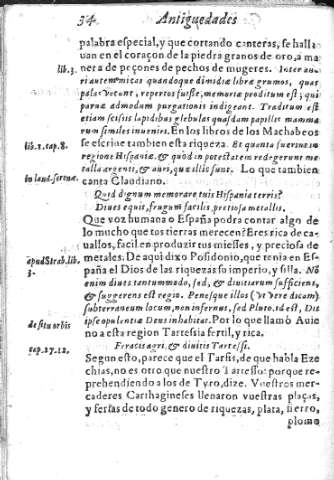 34 Antiguedades
palabra especial, y que cortando canteras, se halla
uan en el coraçon de la piedra granos de oro, a ma
nera de peçones de pechos de mugeres. Inter au
lib. 3.
ri autem micas quandoque dimidiæ libræ grumos, quas
palas vocunt, repertos fuisse, memoriæ proditum est; qui
parua admodum purgationis indigent. Traditum est
etiam scissis lapidibus glebulas quasdam papillis mamma
rum similes inueniri. En los libros de los Machabeos
lib. 1. cap. 8.
se escriue tambien esta riqueza. Et quanta fecerunt in
regione Hispaniæ, & quòd in potestatem redegerunt me
talla argenti, & auri, quæ illic sunt. Lo que tambien
in laud. serenæ.
canta Claudiano.
Quid dignum memorare tuis Hispania terris?
Diues equis, frugum facilis, pretiosa metallis.
Que voz humana o España podra contar algo de
lo mucho que tus tierras merecen? Eres rica de ca
uallos, facil en produzir tus miesses, y preciosa de
metales: De aqui dixo Posidonio, que tenia en Es-
apud Strab. lib.
3.
paña el Dios de las riquezas su imperio, y silla. Nõ
enim diues tantummodo, sed, & diuitiarum sufficiens,
& suggerens est regio. Penes que illos (vt verè dicam)
subterraneum locum, non infernus, sed Pluto, id est, Dit
ipse opulentia Deus inhabitat. Por lo que llamò Auie
de situ orbis
no a esta region Tartessia fertil, y rica.
Feracis agri, & diuitis Tartessi.
cap. 27. 12.
Segun esto, parece que el Tarsis, de que habla Eze
chias, no es otro que nuestro Tartesso: porque re-
prehendiendo a los de Tyro, dize. Vuestros mer-
caderes Carthagineses llenaron vuestras plaças,
y ferias de todo genero de riquezas, plata, hierro,
plomo